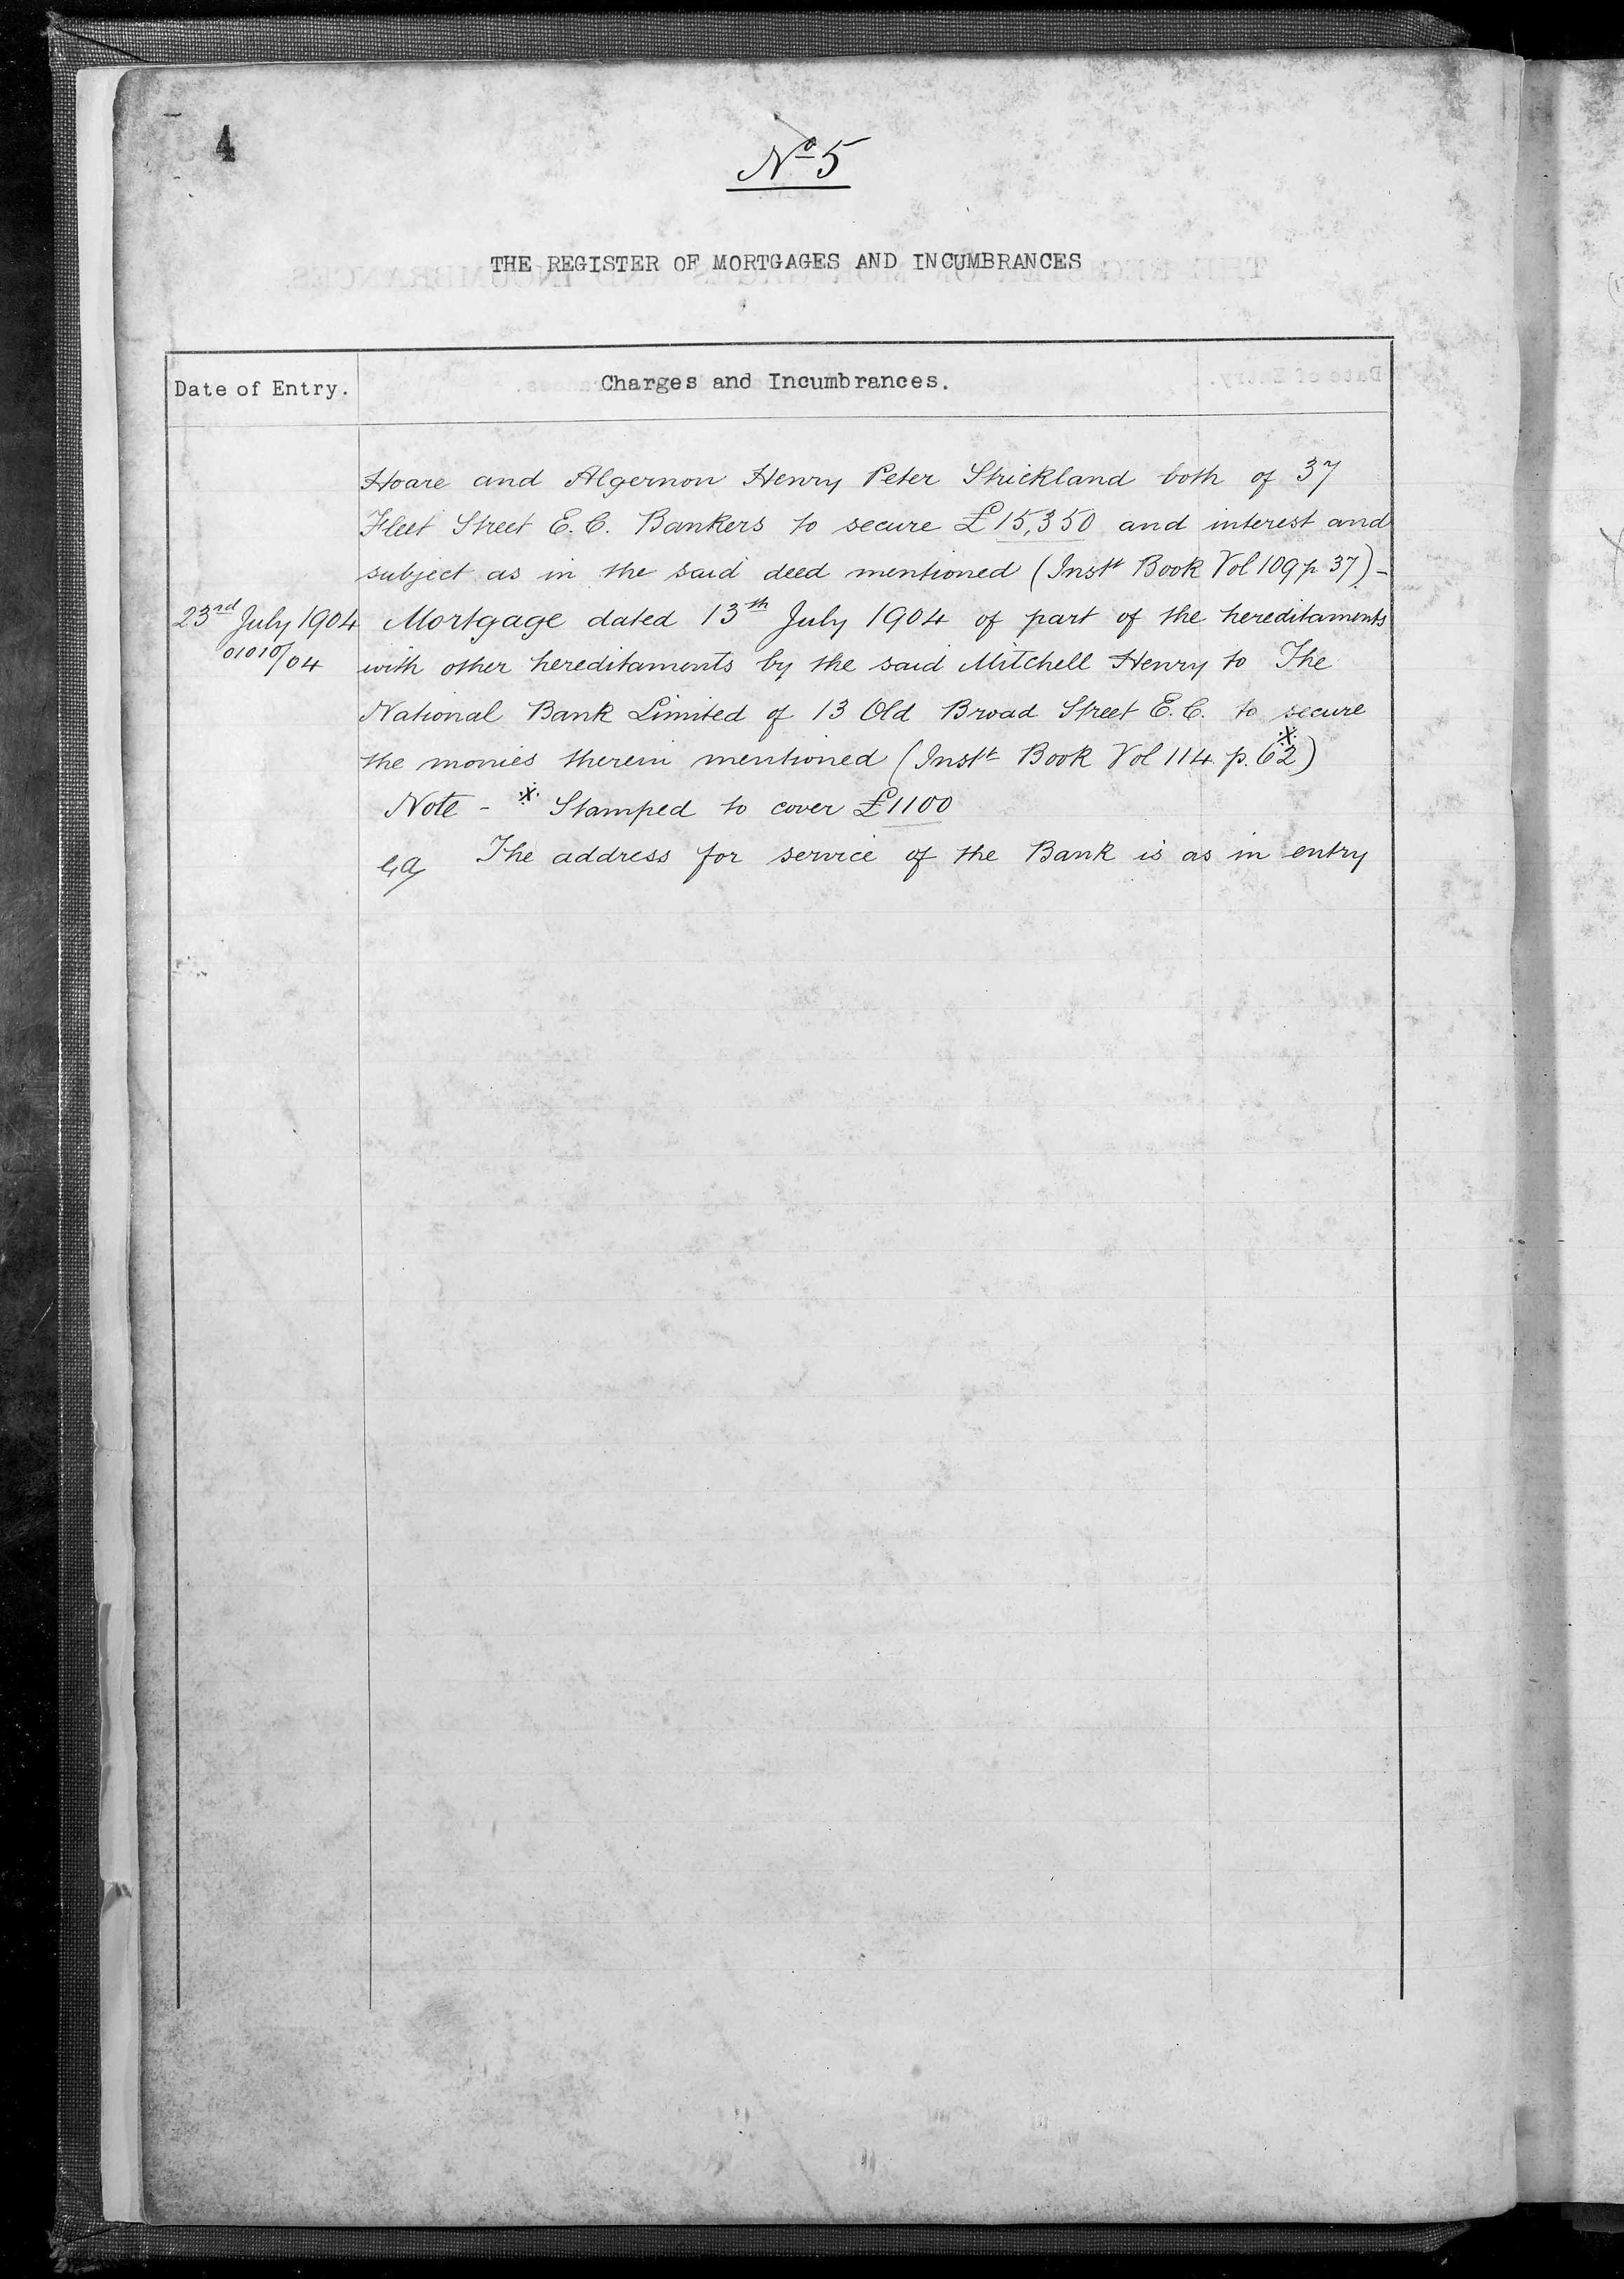 4
No 5
THE REGISTER OF MORTGAGES AND INCUMBRANCES
Date of Entry.
Charges and Incumbrances.
Hoare and Algernon Henry Peter Strickland both of 37
Fleet Street E.C. Bankers to secure £15,350 and interest and
subject as in the said deed mentioned (Instt Book Vol 109 p 37) -
23rd July 1904 Mortgage dated 13th July 1904 of part of the hereditaments
01010/04 with other hereditaments by the said Mitchell Henry to The
National Bank Limited of 13 Old Broad Street E.C. to secure
the monies therein mentioned (Instt Book Vol 114 p. 62 ※)
Note - ※ Stamped to cover £1100
The address for service of the Bank is as in entry